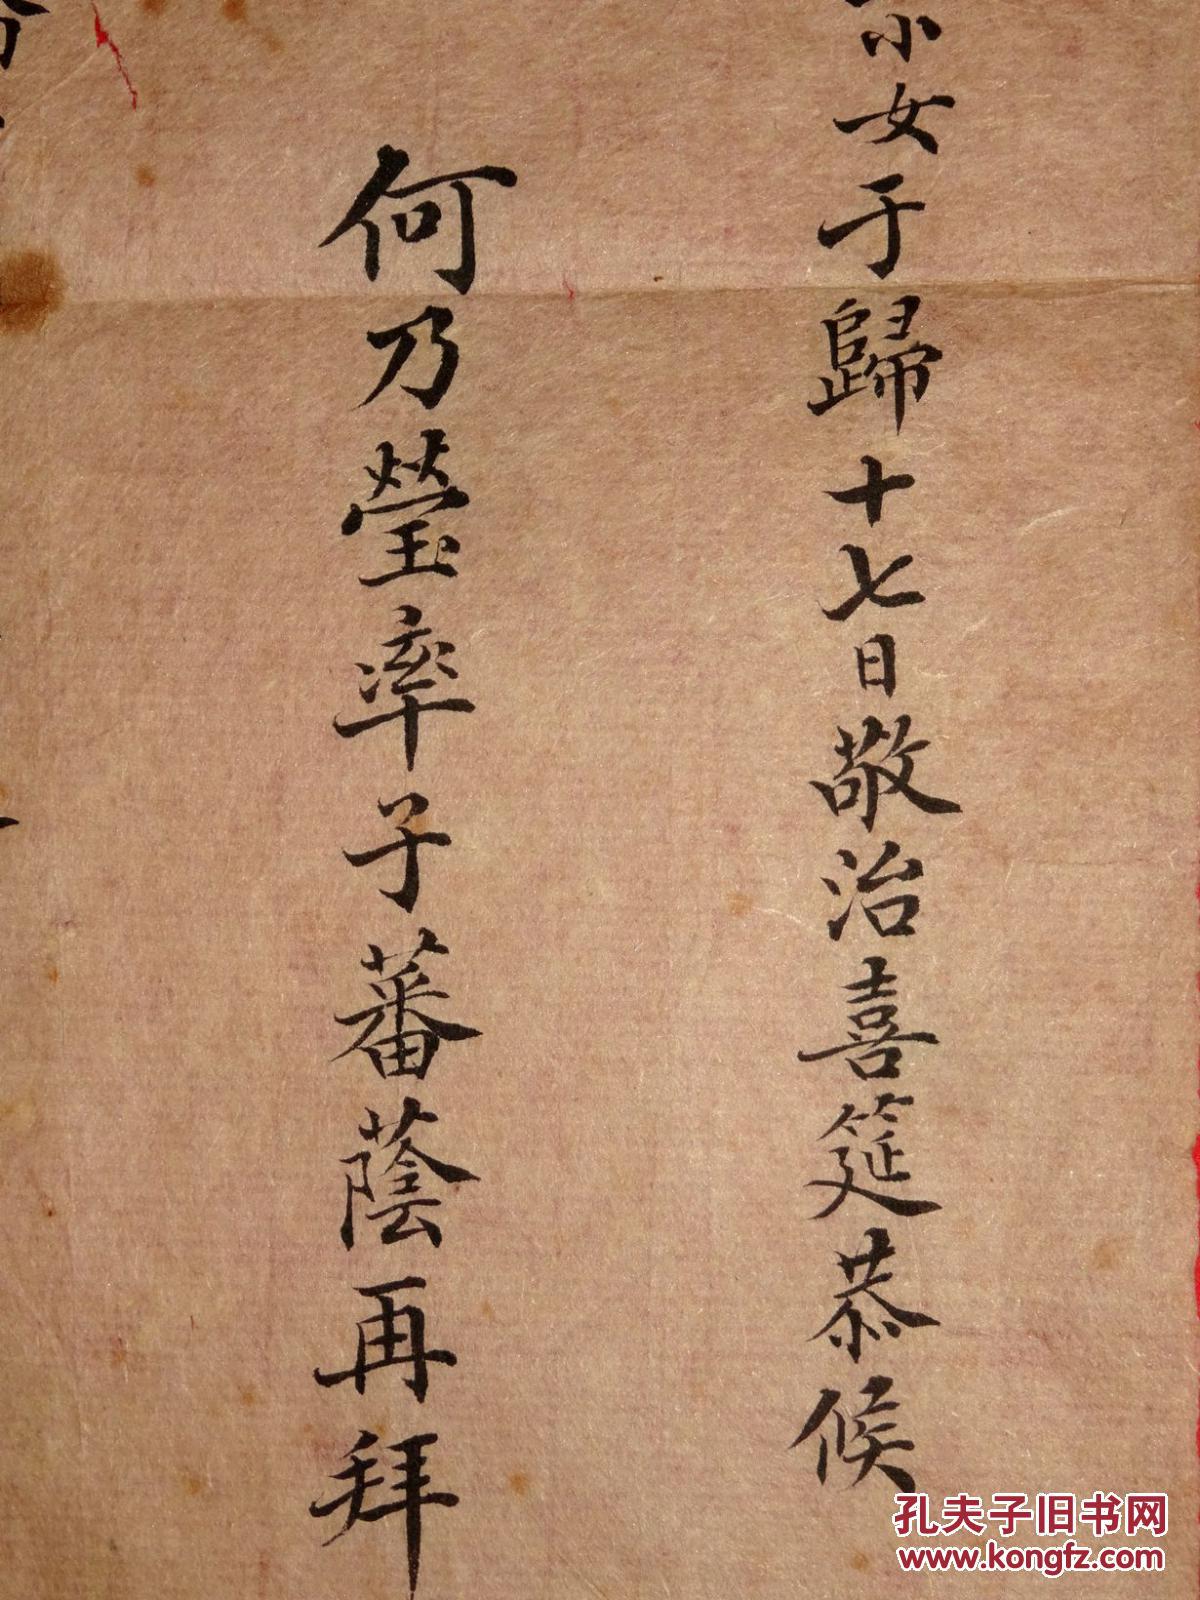 小女于歸十七日敬治喜筵恭候
何乃瑩率子蕃蔭再拜
孔夫子旧书网
www.kongfz.com